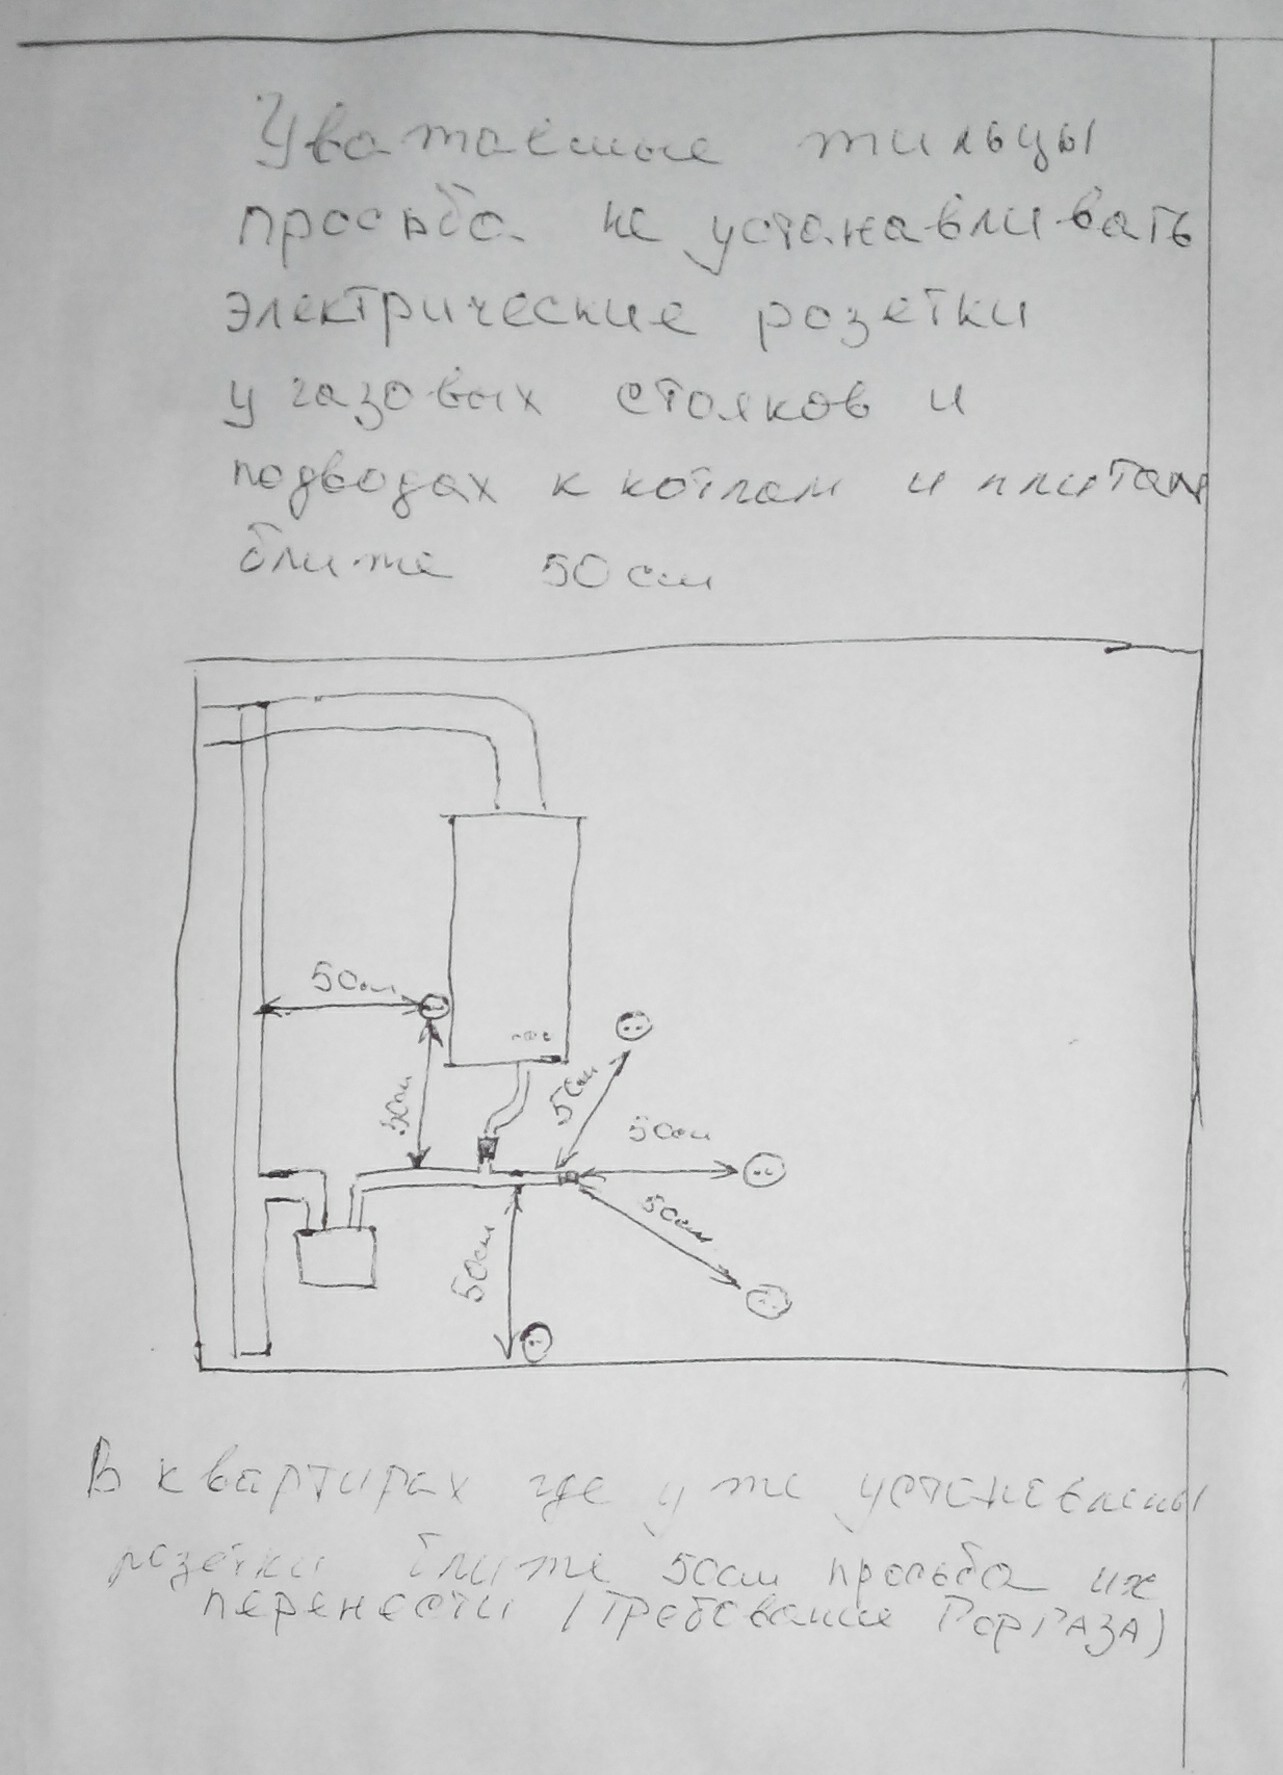 Уважаемые жильцы
просьба не устанавливать
электрические розетки
у газовых стояков и
подводах к котлам и плитам
ближе 50 см
50см
50см
50см
50см
50см
50см
В квартирах где уже установлены
розетки ближе 50см просьба их
перенести (требование ГорГАЗА)